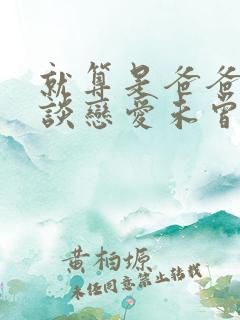 就算是爸爸
談戀愛未曾
黃柏塬
未经同意禁止转载